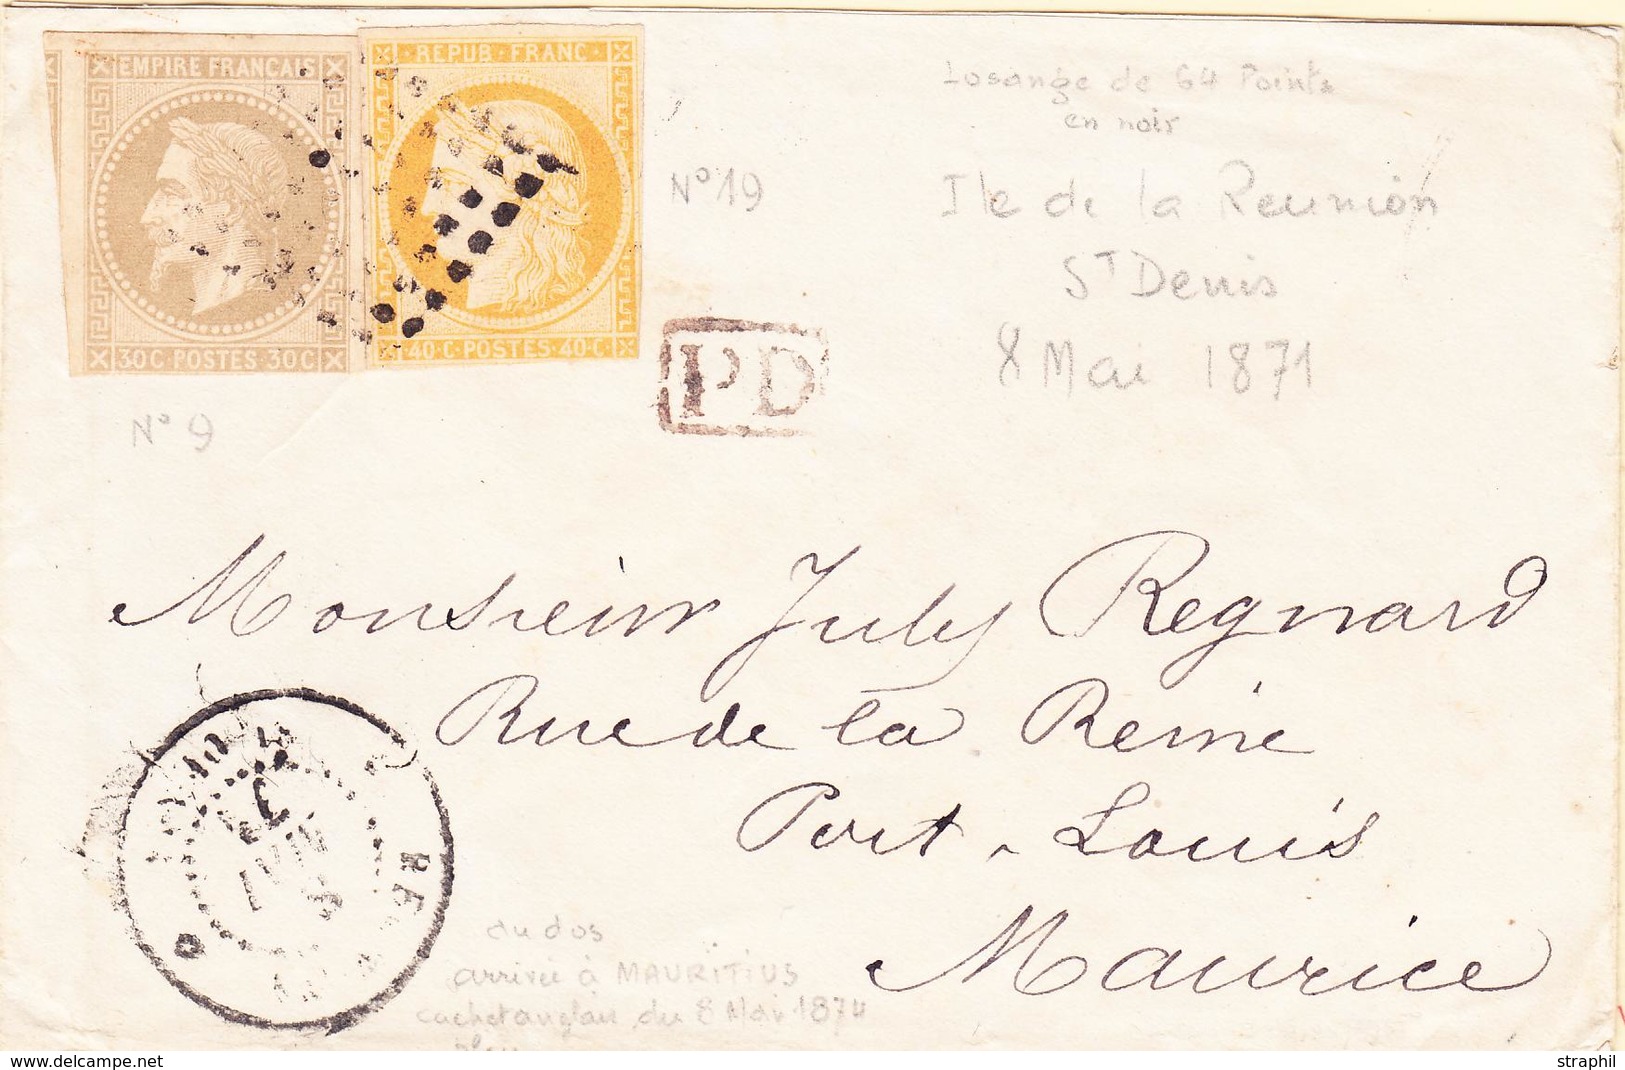 EMPIRE FRANCAIS
30C·POSTES·30C
REPUB·FRANC
40·C·POSTES·40·C
N° 19
N° 9
PD
Losange de 64 Points
en noir
Ile de la Reunion
ST Denis
8 Mai 1871
Monsieur July Regnard
Rue de la Reine
Port-Louis
Maurice
au dos
arrivée à MAURITIUS
cachet anglais du 8 Mai 1874
delcampe.net
straphil